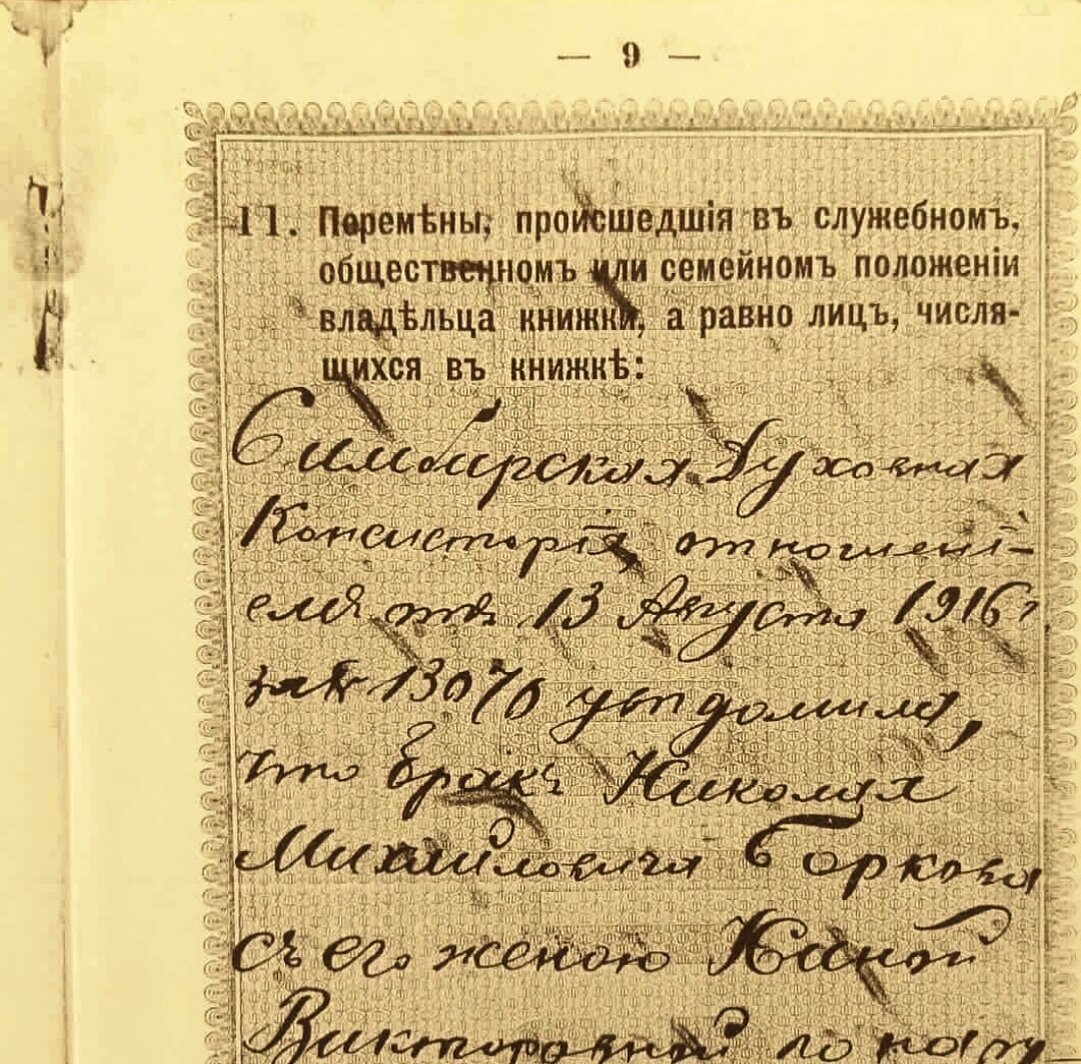 — 9 —
11. Перемѣны, происшедшія въ служебномъ,
общественномъ или семейномъ положеніи
владѣльца книжки, а равно лицъ, числя-
щихся въ книжкѣ:
Симбирская Духовная
Консисторія отношені-
емъ отъ 13 Августа 1916 г.
за № 13070 увѣдомила,
что бракъ Николая
Михайловича Боркова
съ его женою Ниной
Викторовной по